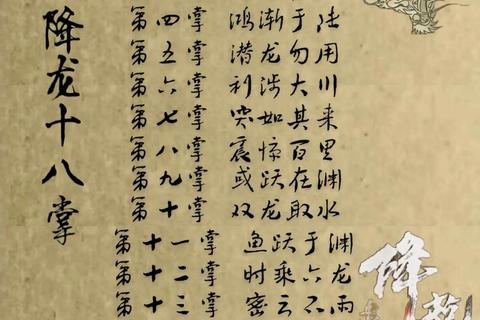 降龙十八掌
第四掌 鸿渐于陆
第五掌 潜龙勿用
第六掌 利涉大川
第七掌 突如其来
第八掌 震惊百里
第九掌 或跃在渊
第十掌 双龙取水
第十一掌 鱼跃于渊
第十二掌 时乘六龙
第十三掌 密云不雨